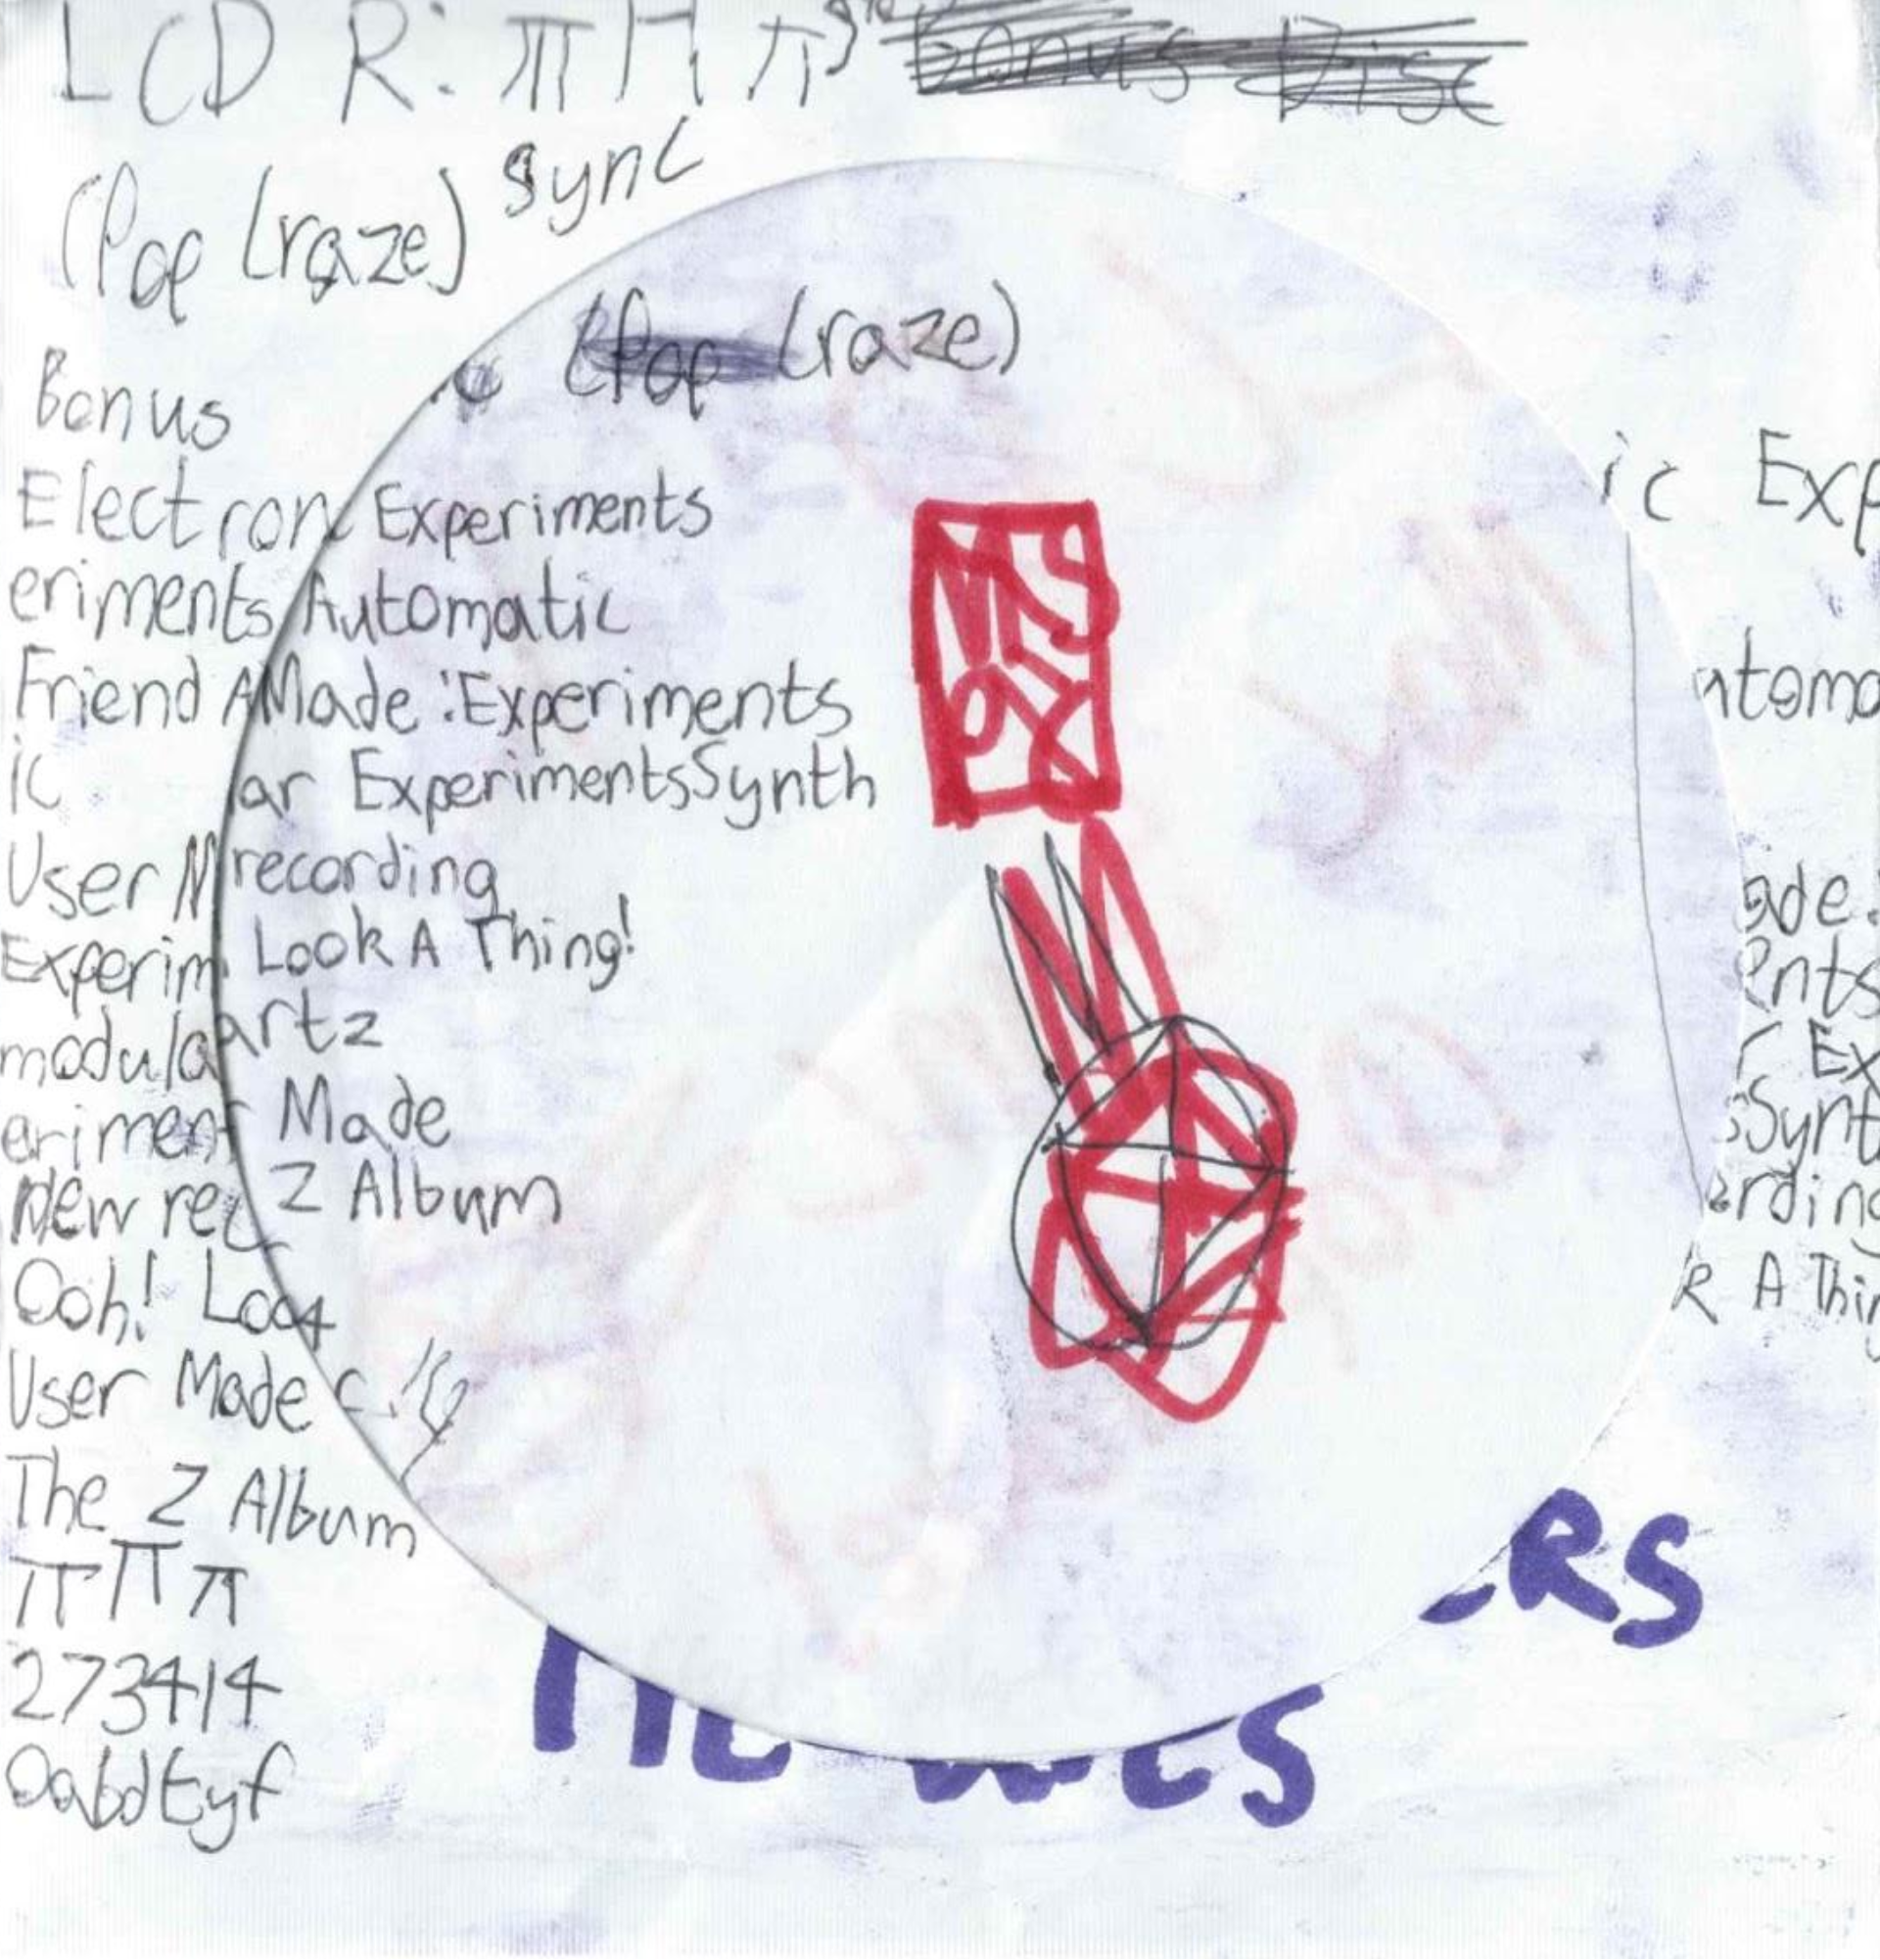 LCD R: πΠπ Bonus Disc
(Pop Craze) Sync
(Pop Craze)
Bonus
Electron Experiments
eriments Automatic
Friend A Made :Experiments
ic ar ExperimentsSynth
User M recording
Experim Look A Thing!
modula artz
eriment Made
New rec Z Album
Ooh! Loo
User Made
The Z Album
πΠπ
273414
OabdEyf
ic Exp
utoma
ade:
ents
r Ex
sSynt
ording
R A Thin
RS